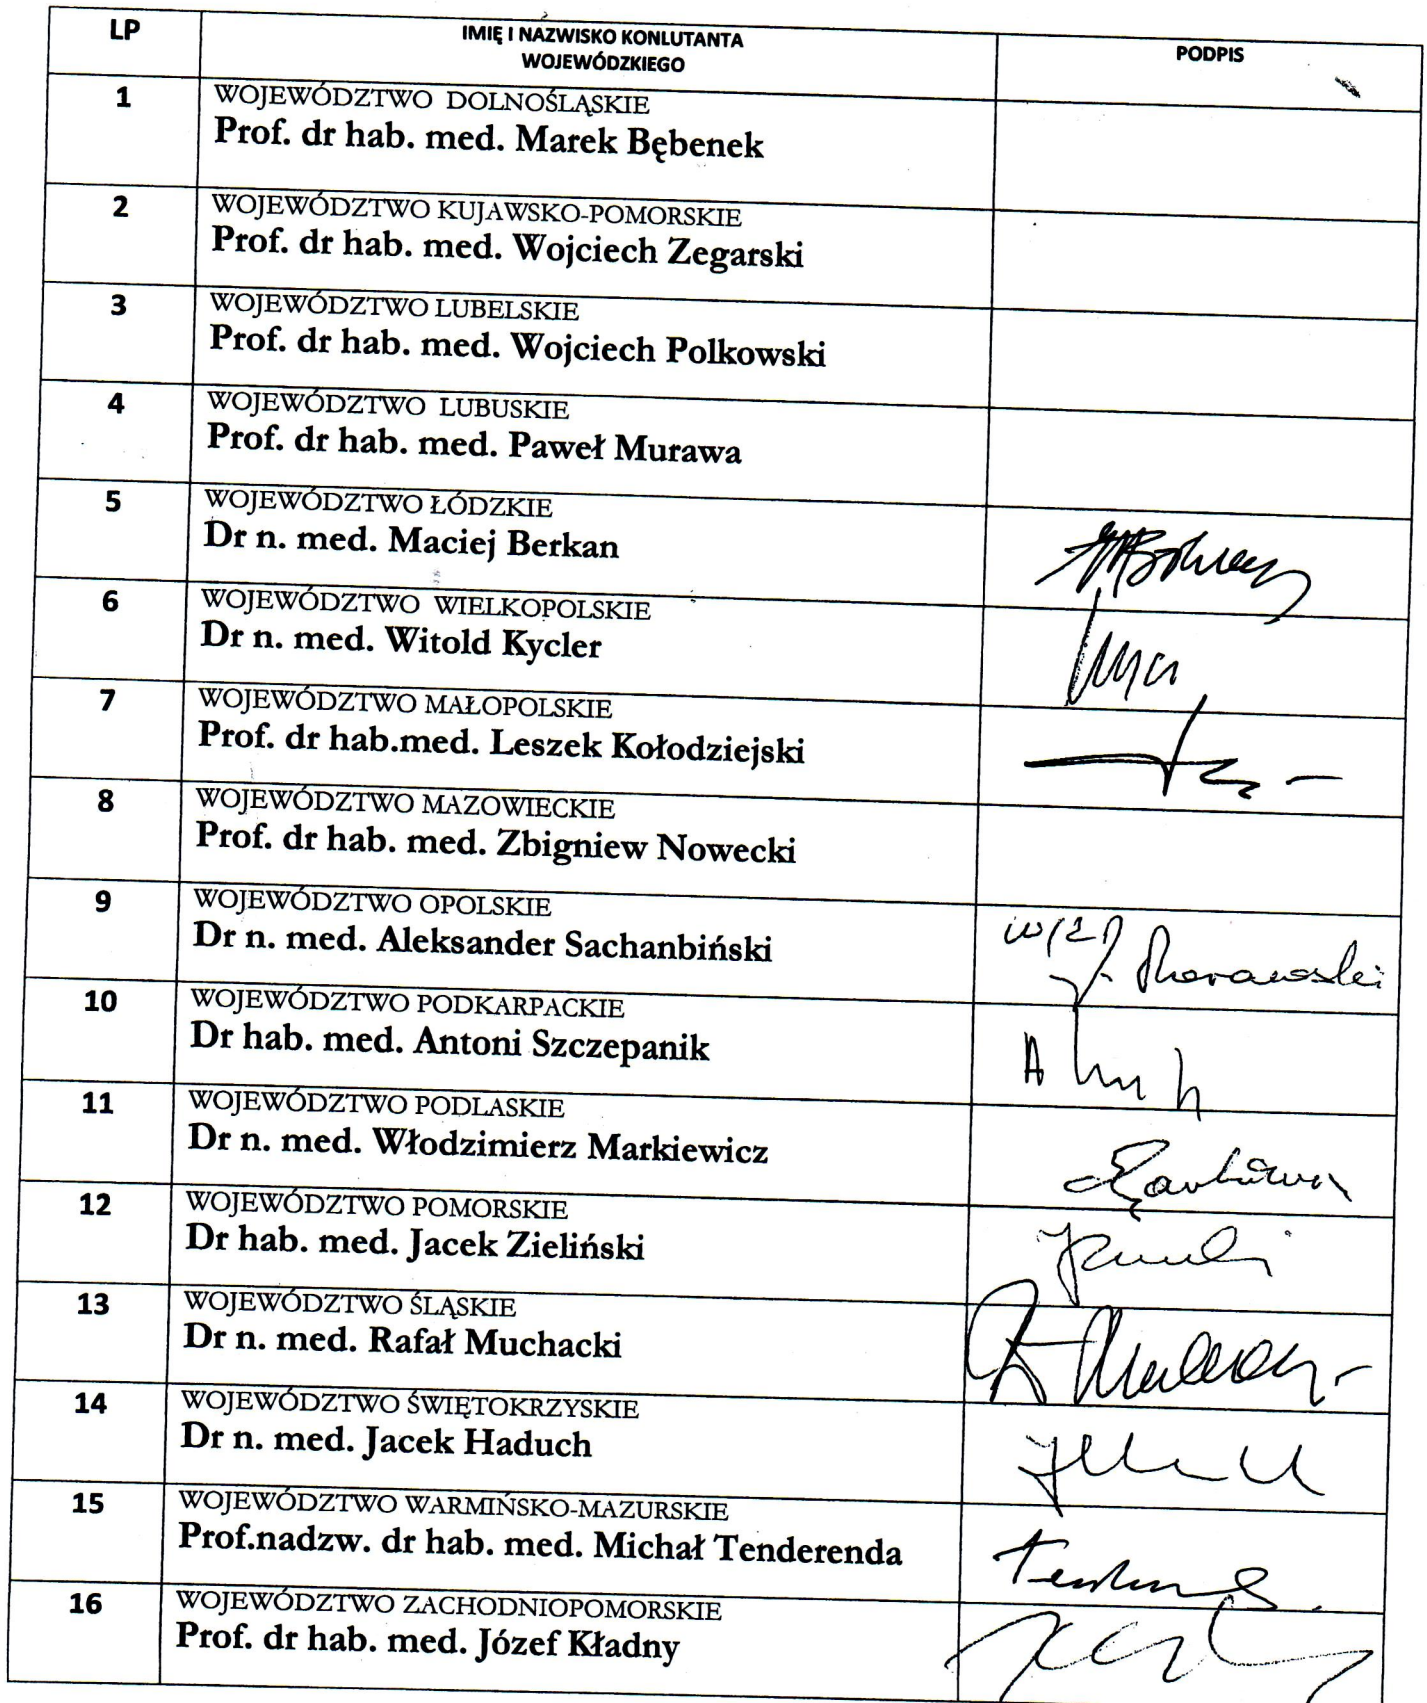 LP
IMIĘ I NAZWISKO KONLUTANTA
WOJEWÓDZKIEGO
PODPIS
1
WOJEWÓDZTWO DOLNOŚLĄSKIE
Prof. dr hab. med. Marek Bębenek
2
WOJEWÓDZTWO KUJAWSKO-POMORSKIE
Prof. dr hab. med. Wojciech Zegarski
3
WOJEWÓDZTWO LUBELSKIE
Prof. dr hab. med. Wojciech Polkowski
4
WOJEWÓDZTWO LUBUSKIE
Prof. dr hab. med. Paweł Murawa
5
WOJEWÓDZTWO ŁÓDZKIE
Dr n. med. Maciej Berkan
6
WOJEWÓDZTWO WIELKOPOLSKIE
Dr n. med. Witold Kycler
7
WOJEWÓDZTWO MAŁOPOLSKIE
Prof. dr hab.med. Leszek Kołodziejski
8
WOJEWÓDZTWO MAZOWIECKIE
Prof. dr hab. med. Zbigniew Nowecki
9
WOJEWÓDZTWO OPOLSKIE
Dr n. med. Aleksander Sachanbiński
10
WOJEWÓDZTWO PODKARPACKIE
Dr hab. med. Antoni Szczepanik
11
WOJEWÓDZTWO PODLASKIE
Dr n. med. Włodzimierz Markiewicz
12
WOJEWÓDZTWO POMORSKIE
Dr hab. med. Jacek Zieliński
13
WOJEWÓDZTWO ŚLĄSKIE
Dr n. med. Rafał Muchacki
14
WOJEWÓDZTWO ŚWIĘTOKRZYSKIE
Dr n. med. Jacek Haduch
15
WOJEWÓDZTWO WARMIŃSKO-MAZURSKIE
Prof.nadzw. dr hab. med. Michał Tenderenda
16
WOJEWÓDZTWO ZACHODNIOPOMORSKIE
Prof. dr hab. med. Józef Kładny